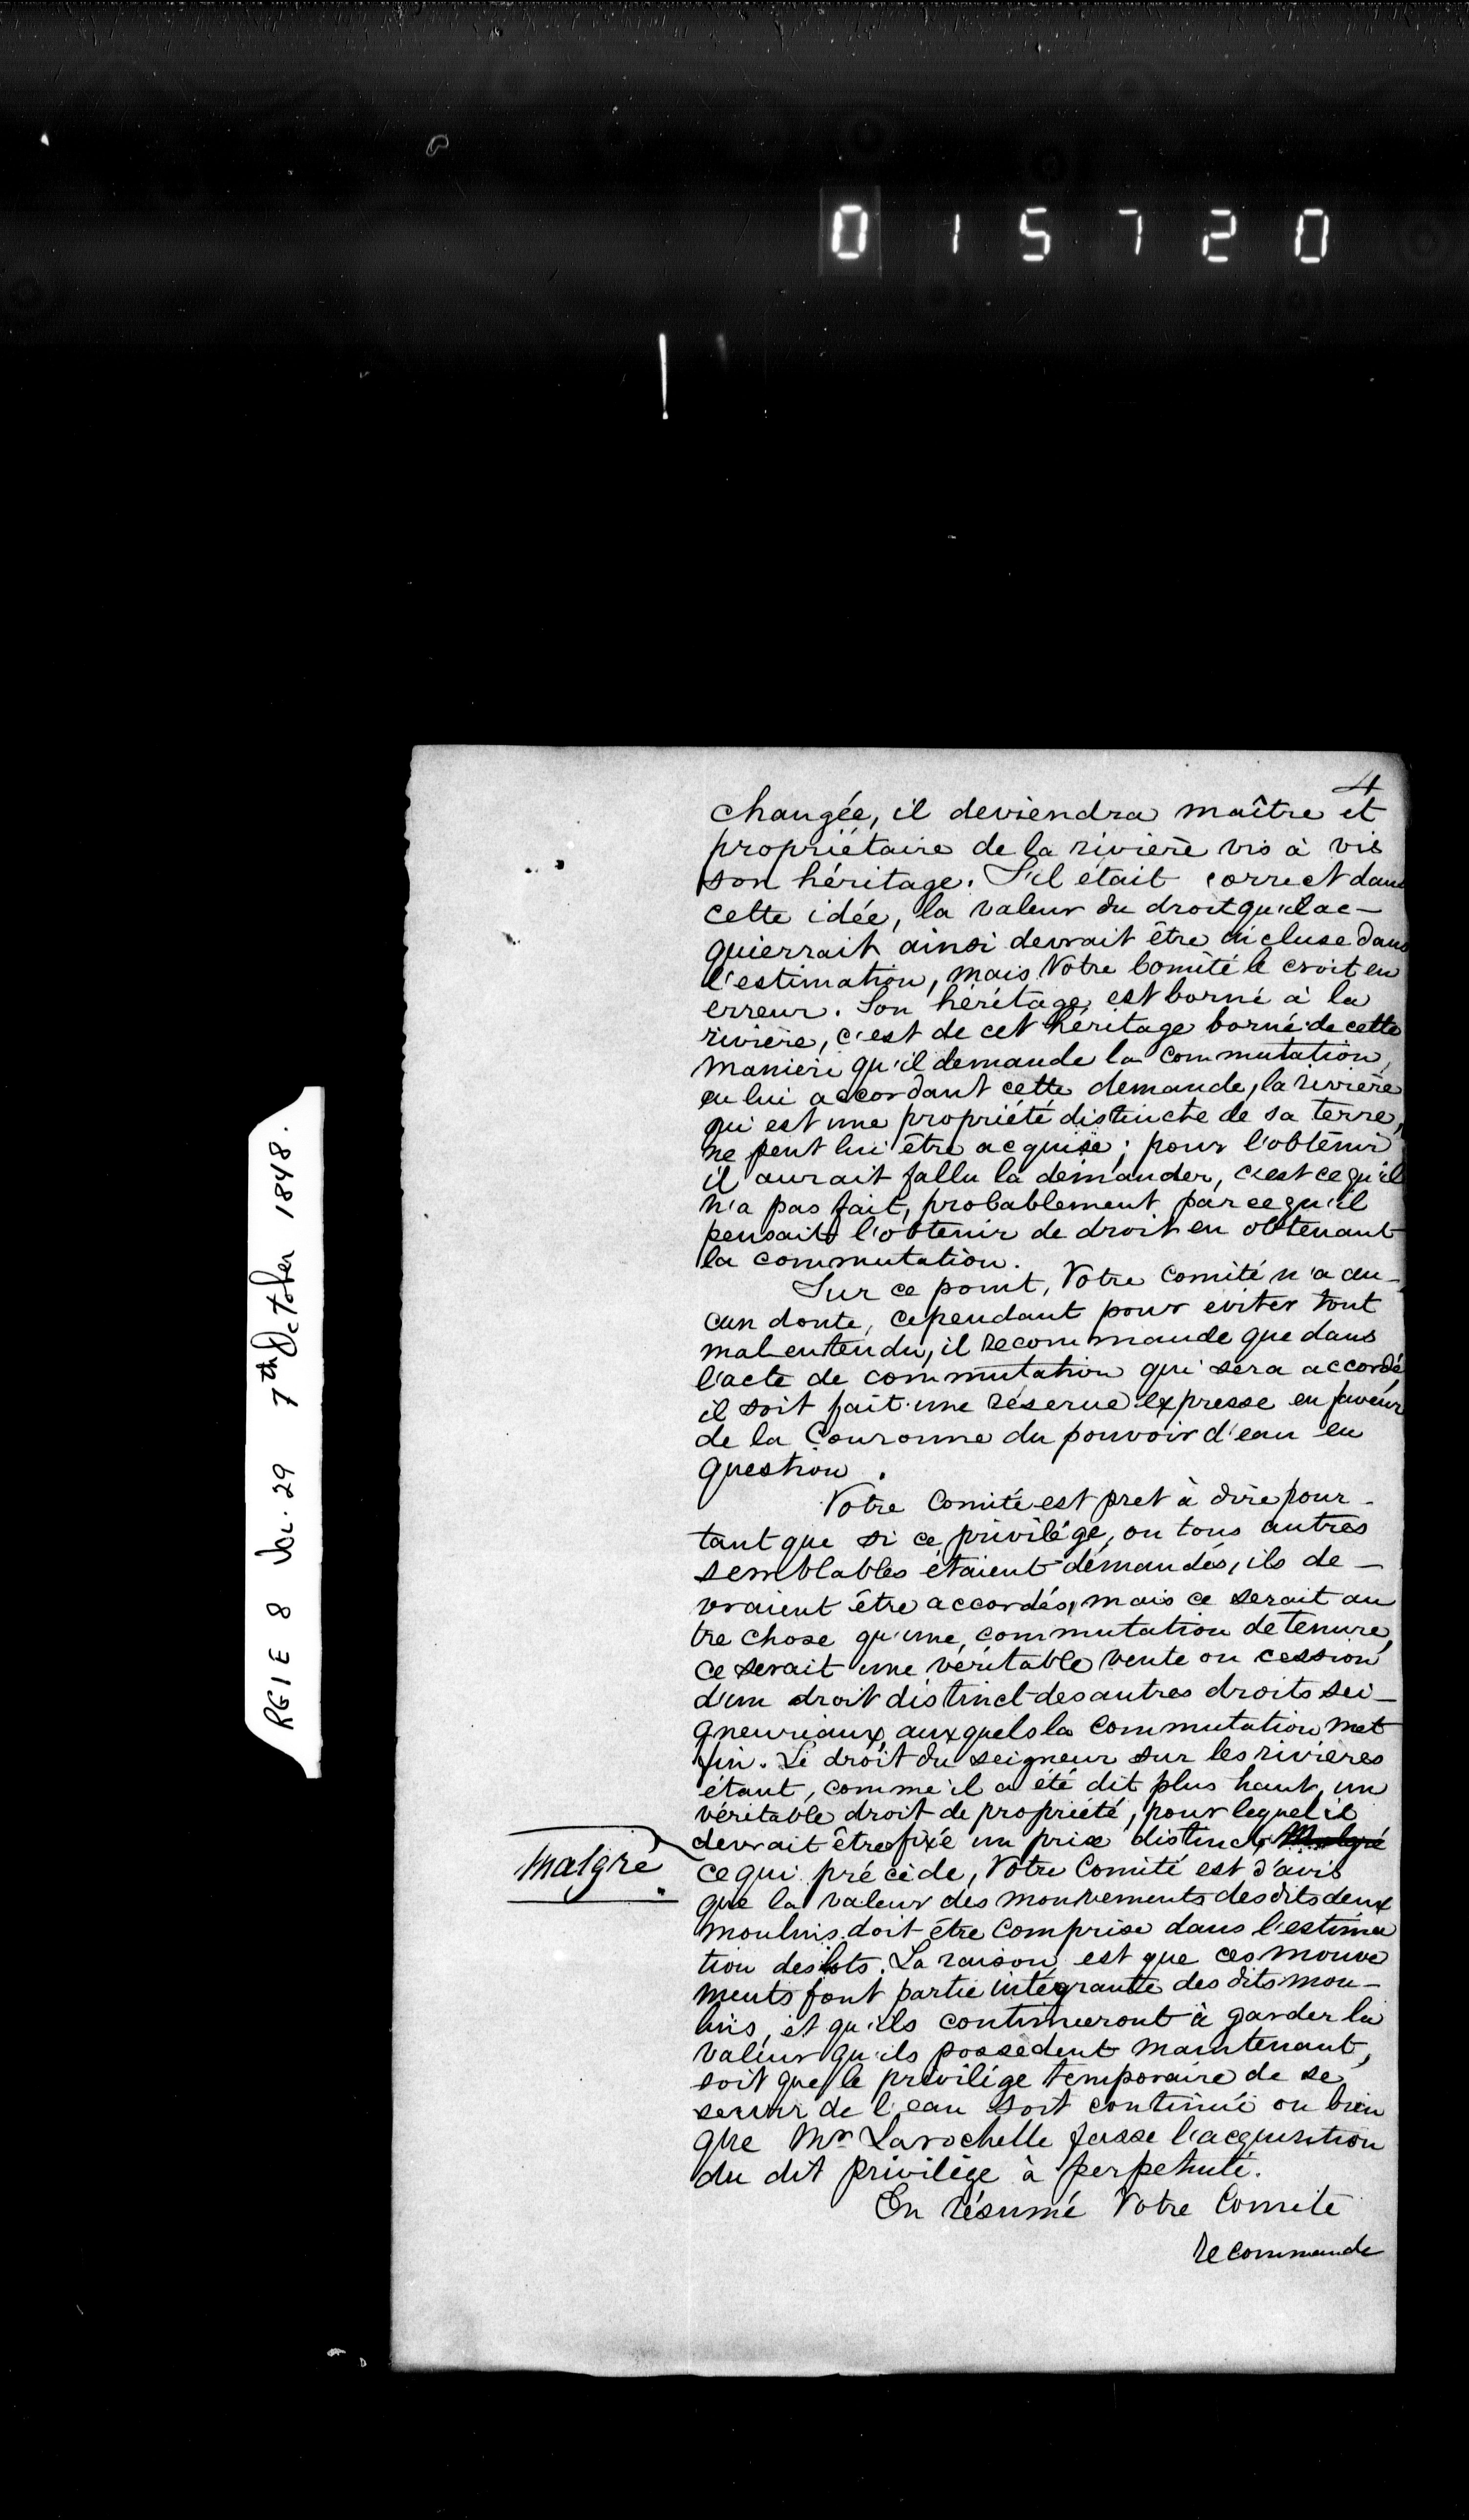 015720
RG1 E 8 Vol. 29 7th October 1848.
4
changée, il deviendra maître et
propriétaire de la rivière vis à vis
son héritage. S'il était correct dans
cette idée, la valeur du droit qu'il ac-
quierrait ainsi devrait être incluse dans
l'estimation, mais Votre Comité le croit en
erreur. Son héritage est borné à la
rivière, c'est de cet héritage borné de cette
manière qu'il demande la commutation,
en lui accordant cette demande, la rivière
qui est une propriété distincte de sa terre,
ne peut lui être acquise; pour l'obtenir
il aurait fallu la demander, c'est ce qu'il
n'a pas fait, probablement parcequ'il
pensait l'obtenir de droit en obtenant
la commutation.
Sur ce point, Votre Comité n'a au-
cun doute, cependant pour eviter tout
malentendu, il recommande que dans
l'acte de commutation qui sera accordé
il soit fait une réserve expresse en faveur
de la Couronne du pouvoir d'eau en
question.
Votre Comité est pret à dire pour-
tant que si ce privilége, ou tous autres
semblables étaient demandés, ils de-
vraient être accordés, mais ce serait au
tre chose qu'une commutation de tenure,
ce serait une véritable vente ou cession
d'un droit distinct des autres droits sei-
gneuriaux auxquels la commutation met
fin. Le droit du seigneur sur les rivières
étant, comme il a été dit plus haut, un
véritable droit de propriété, pour lequel il
devrait être fixé un prix distinct. Malgré
Malgré
ce qui précède, Votre Comité est d'avis
que la valeur des mouvements desdits deux
moulins doit être comprise dans l'estima
tion des lots. La raison est que ces mouve
ments font partie intégrante des dits mou-
lins, et qu'ils continueront à garder la
valeur qu'ils possèdent maintenant,
soit que le privilége temporaire de se
servir de l'eau soit continué ou bien
que Mr Larochelle fasse l'acquisition
du dit privilége à perpetuité.
En résumé Votre Comité
recommande